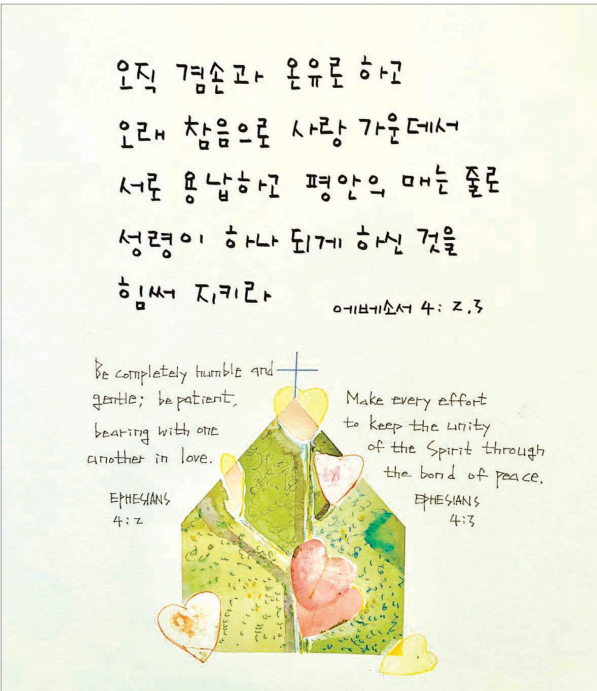 오직 겸손과 온유로 하고
오래 참음으로 사랑 가운데서
서로 용납하고 평안의 매는 줄로
성령이 하나 되게 하신 것을
힘써 지키라
에베소서 4: 2,3
Be completely humble and
gentle; be patient,
bearing with one
another in love.
EPHESIANS
4:2
Make every effort
to keep the unity
of the Spirit through
the bond of peace.
EPHESIANS
4:3